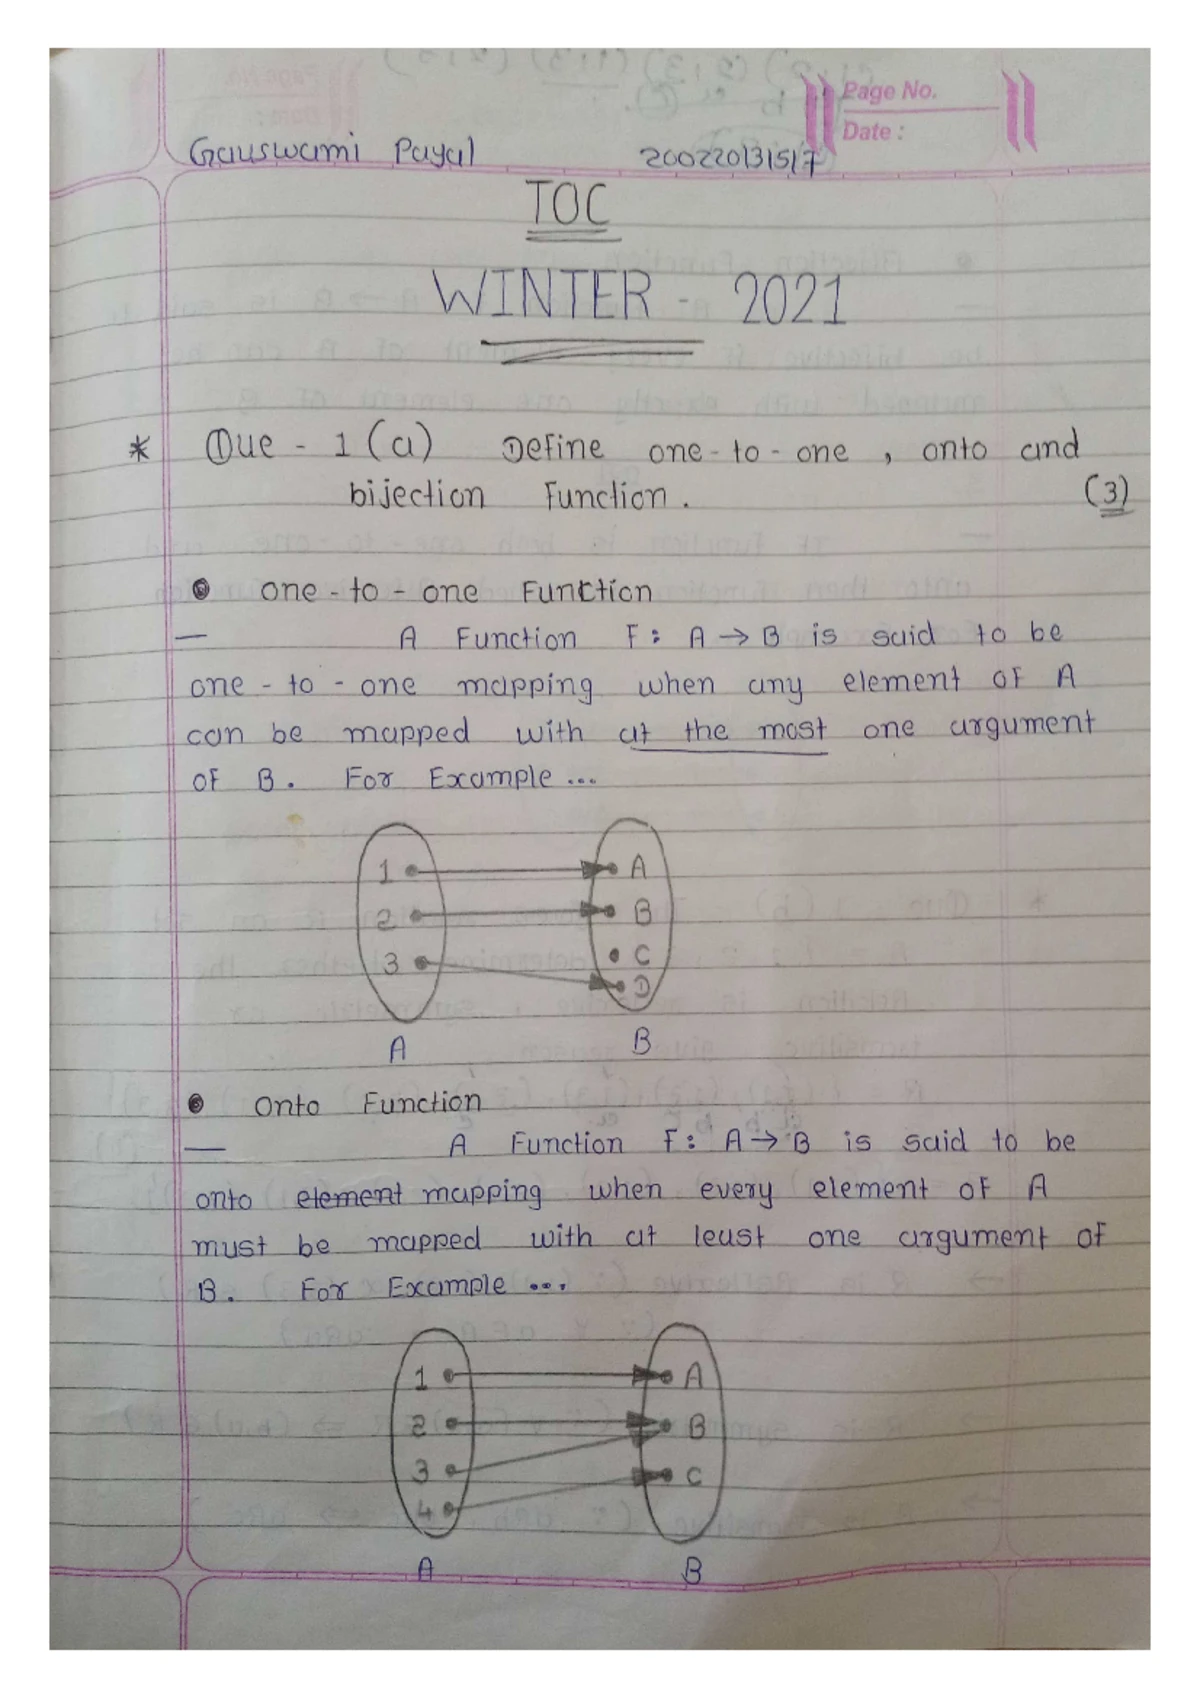 Page No.
Date :
Gauswami Payal 200220131517
TOC
WINTER - 2021
* Que - 1 (a) Define one-to-one , onto and
bijection Function . (3)
one-to-one Function
— A Function F: A → B is said to be
one-to-one mapping when any element of A
can be mapped with at the most one argument
of B. For Example ...
1 A
2 B
3 C
D
A B
Onto Function
— A Function F: A → B is said to be
onto element mapping when every element of A
must be mapped with at least one argument of
B. For Example ...
1 A
2 B
3 C
4
A B